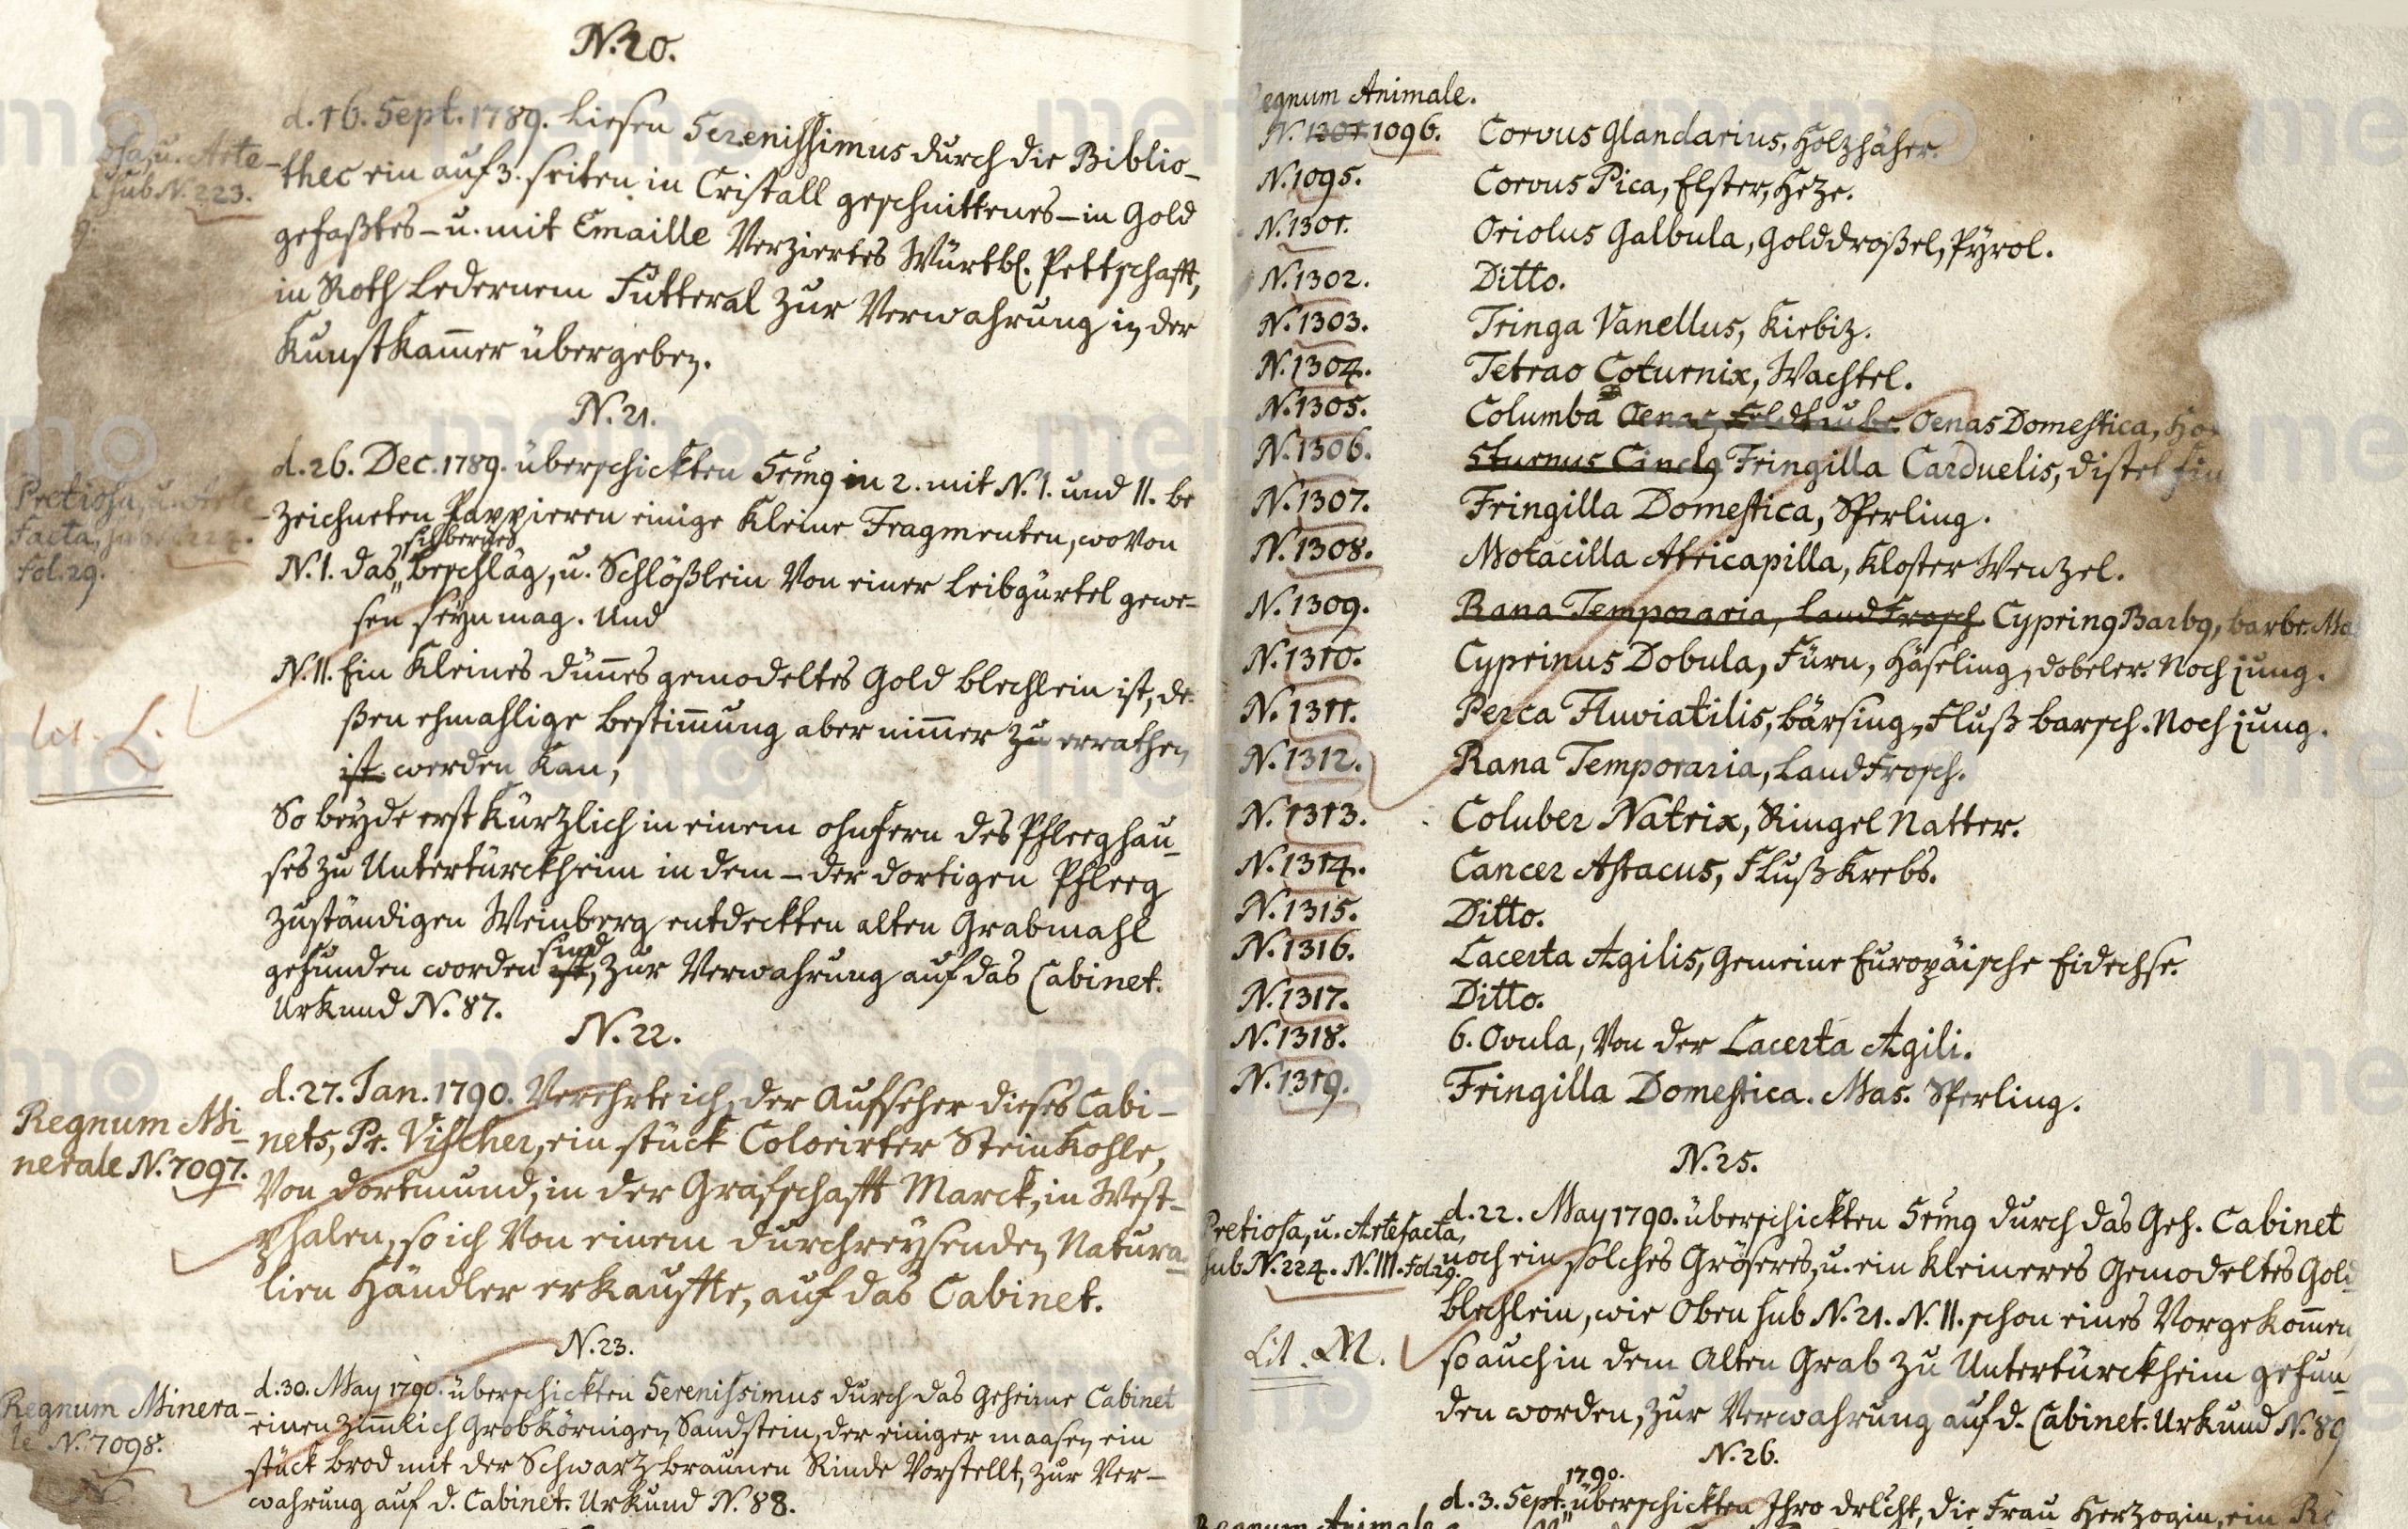 N. 20.
d. 16. Sept. 1789. liesen Serenissimus durch die Biblio-
thec ein auf 3. seiten in Cristall geschnittenes – in Gold
gefaßtes – u. mit Emaille Verziertes Würtbl. Pettschafft,
in Roth ledernem Futteral zur Verwahrung in der
Kunstkam̄er übergeben.
osa, u. Arte-
sub N. 223.
N. 21.
d. 26. Dec. 1789. überschickten Sermg in 2. mit N. I. und II. be
zeichneten Pappieren einige kleine Fragmenten, wovon
silbernes
N. I. das beschläg, u. Schlößlein Von einer leibgürtel gewe-
sen seyn mag. Und
N. II. Ein kleines dün̄es gemodeltes Gold blechlein ist, de-
ßen ehmahlige bestim̄ung aber nim̄er zu errathen
ist werden kan,
So beyde erst kürzlich in einem ohnfern des Pfleeghau-
ses zu Untertürckheim in dem – der dortigen Pfleeg
zuständigen Weinberg entdeckten alten Grabmahl
sind
gefunden worden ist, zur Verwahrung auf das Cabinet.
Urkund N. 87.
Pretiosa, u. Arte-
Facta, sub N. 224.
Fol. 29.
Lit. L.
N. 22.
d. 27. Jan. 1790. Verehrte ich, der Aufseher dieses Cabi-
nets, Pr. Vischer, ein stück Coloeirter Steinkohle,
Von dortmund, in der Grafschafft Marck, in West-
phalen, so ich Von einem durchreysenden Natura-
lien Händler erkauffte, auf das Cabinet.
Regnum Mi-
nerale N. 7097.
N. 23.
d. 30. May 1790. überschickten Serenissimus durch das Geheime Cabinet
einen zim̄lich Grobkörnigen Sandstein, der einiger maasen ein
stück brod mit der Schwarz braunen Rinde Vorstellt, zur Ver-
wahrung auf d. Cabinet. Urkund N. 88.
Regnum Minera-
le N. 7098.
N.
egnum Animale.
N. 1201 1096. Corvus Glandarius, Holzhäher.
N. 1095. Corvus Pica, Elster, Heze.
N. 1301. Oriolus Galbula, Golddroßel, Pyrol.
N. 1302. Ditto.
N. 1303. Tringa Vanellus, Kiebiz.
N. 1304. Tetrao Coturnix, Wachtel.
N. 1305. Columba Oenas, Feldtaube. Oenas Domestica,
N. 1306. Sturnus Cinclg Fringilla Carduelis, distel fin
N. 1307. Fringilla Domestica, Sperling.
N. 1308. Motacilla Atricapilla, Kloster Wenzel.
N. 1309. Rana Temporaria, Landfrosch. Cypring Barbg, barbe. Ma
N. 1310. Cyprinus Dobula, Fürn, Häseling, dobeler. Noch jung.
N. 1311. Perca Fluviatilis, bärsing, Fluß barsch. Noch jung.
N. 1312. Rana Temporaria, Landfrosch.
N. 1313. Coluber Natrix, Ringel Natter.
N. 1314. Cancer Astacus, Fluß Krebs.
N. 1315. Ditto.
N. 1316. Lacerta Agilis, Gemeine Europäische Eidechse.
N. 1317. Ditto.
N. 1318. 6. Ovula, Von der Lacerta Agili.
N. 1319. Fringilla Domestica. Mas. Sperling.
N. 25.
d. 22. May 1790. überschickten Sermg durch das Geh. Cabinet
noch ein solches Gröseres, u. ein kleineres Gemodeltes Gold
blechlein, wie Oben sub N. 21. N. II. schon eines Vorgekom̄en,
so auch in dem Alten Grab zu Untertürckheim gefun-
den worden, zur Verwahrung auf d. Cabinet. Urkund N. 89
Pretiosa, u. Artefacta,
sub N. 224. N. III. Fol. 29.
Lit. M.
N. 26.
1790.
d. 3. Sept. überschickten Ihro drlcht, die Frau Herzogin, ein
Regnum Animale